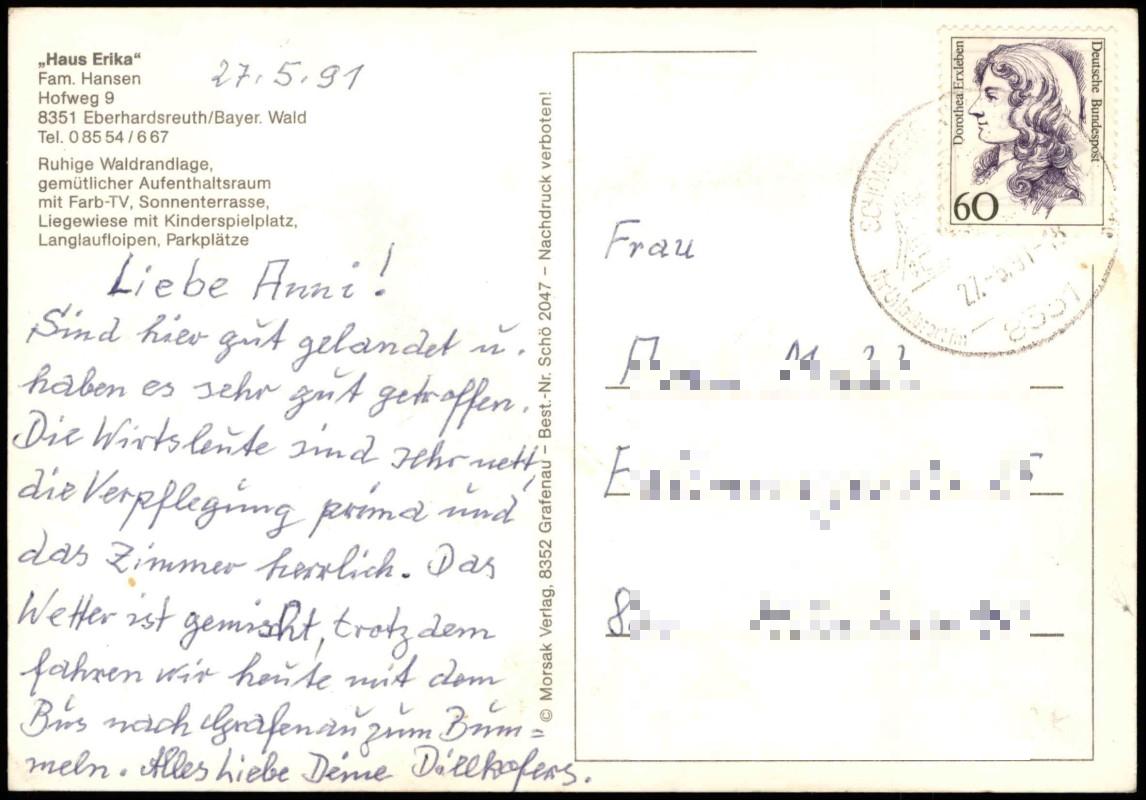 „Haus Erika“
Fam. Hansen
Hofweg 9
8351 Eberhardsreuth/Bayer. Wald
Tel. 0 85 54 / 6 67
Ruhige Waldrandlage,
gemütlicher Aufenthaltsraum
mit Farb-TV, Sonnenterrasse,
Liegewiese mit Kinderspielplatz,
Langlaufloipen, Parkplätze
27.5.91
Liebe Anni!
Sind hier gut gelandet u.
haben es sehr gut getroffen.
Die Wirtsleute sind sehr nett,
die Verpflegung prima und
das Zimmer herrlich. Das
Wetter ist gemischt, trotzdem
fahren wir heute mit dem
Bus nach Grafenau zum Bum=
meln. Alles Liebe Deine Dillkofers.
© Morsak Verlag, 8352 Grafenau – Best.-Nr. Schö 2047 – Nachdruck verboten!
Dorothea Erxleben
Deutsche Bundespost
60
27.-5.91-18
8351
Frau